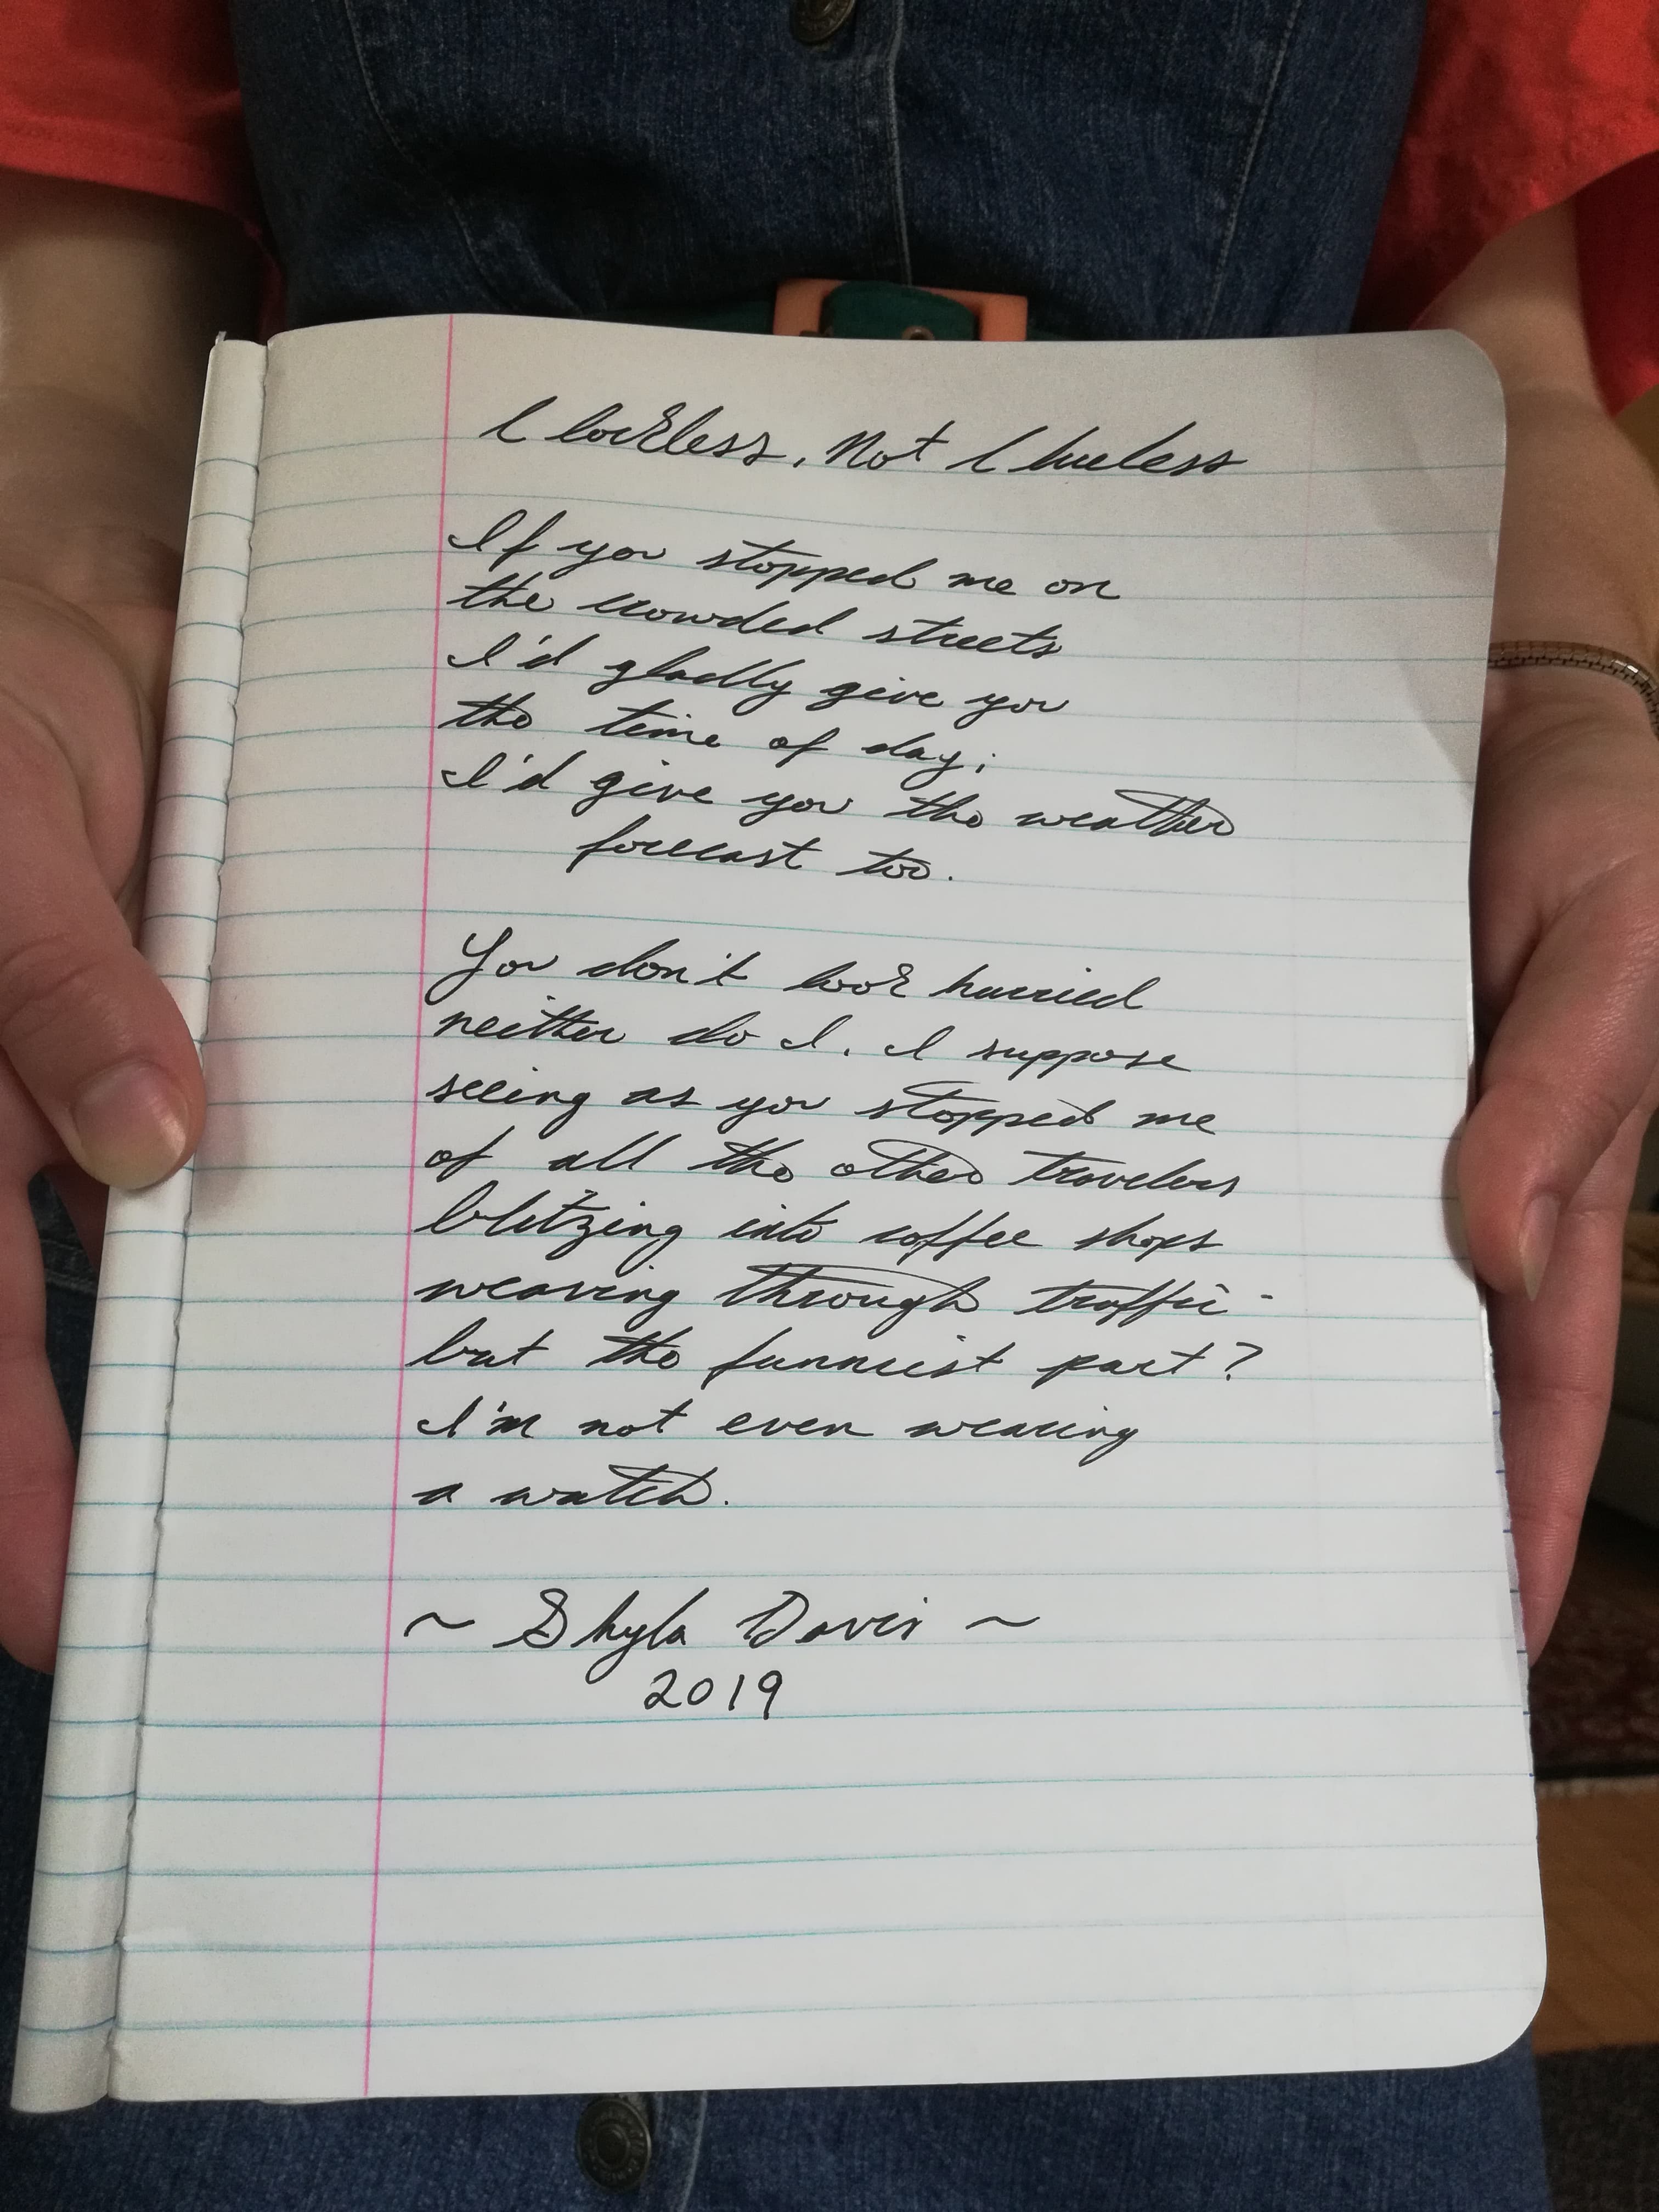 Clockless, Not Clueless
If you stopped me on
the crowded streets
I'd gladly give you
the time of day;
I'd give you the weather
forecast too.
You don't look hurried
neither do I. I suppose
seeing as you stopped me
of all the other travelers
blitzing into coffee shops
weaving through traffic-
but the funniest part?
I'm not even wearing
a watch.
~ Shyla Davis ~
2019